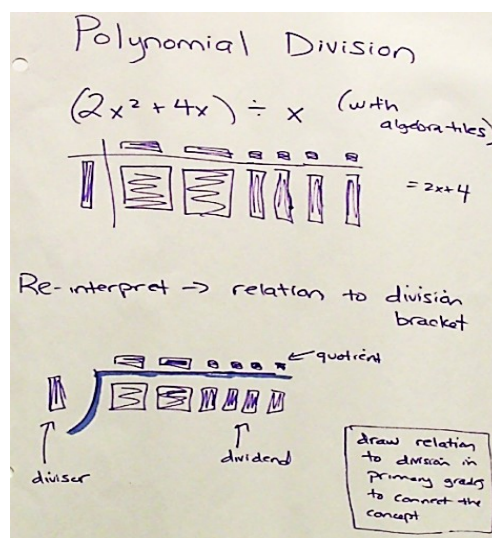 Polynomial Division
(2x² + 4x) ÷ x (with
algebra tiles)
= 2x+4
Re-interpret → relation to division
bracket
quotient
diviser
dividend
draw relation
to division in
primary grades
to connect the
concept